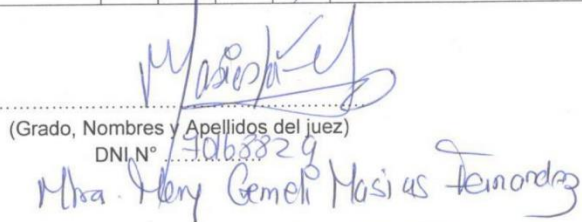 (Grado, Nombres y Apellidos del juez)
DNI N° 70168829
Mtra. Mery Gemeli Masias Fernandez